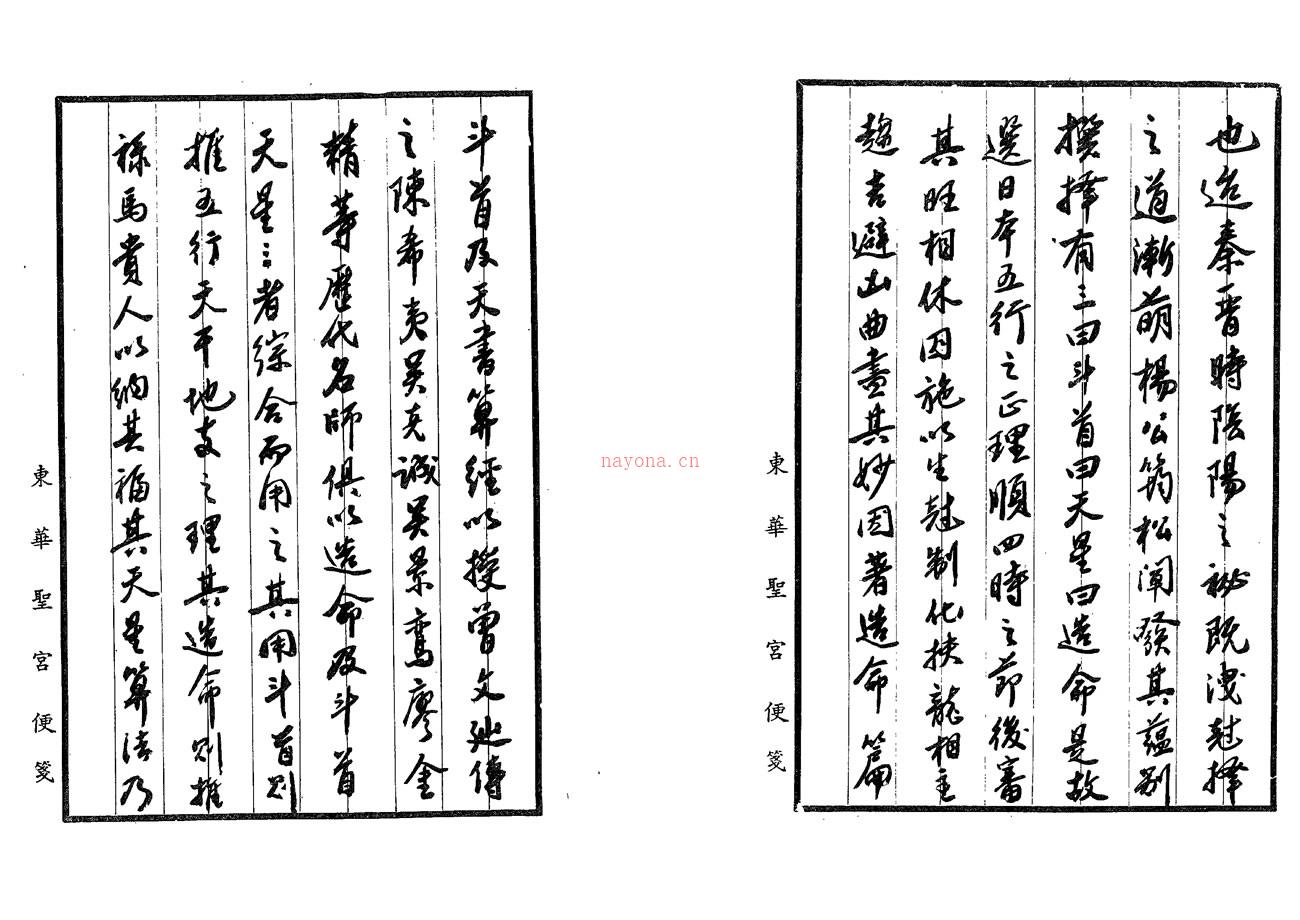 也迨秦晋時陰陽之祕既洩尅擇
之道漸萌楊公筠松闡發其蘊別
撰擇有三曰斗首曰天星曰造命是故
選日本五行之正理順四時之節後審
其旺相休囚施以生尅制化扶龍相主
趨吉避凶曲盡其妙因著造命篇
東華聖宮便箋
斗首及天書算經以授曾文辿傳
之陳希夷吳克誠吳景鸞廖金
精等歷代名師俱以造命及斗首
天星〻者綜合而用之其用斗首則
推五行天干地支之理其造命則推
祿馬貴人以納其福其天星算法乃
東華聖宮便箋
nayona.cn